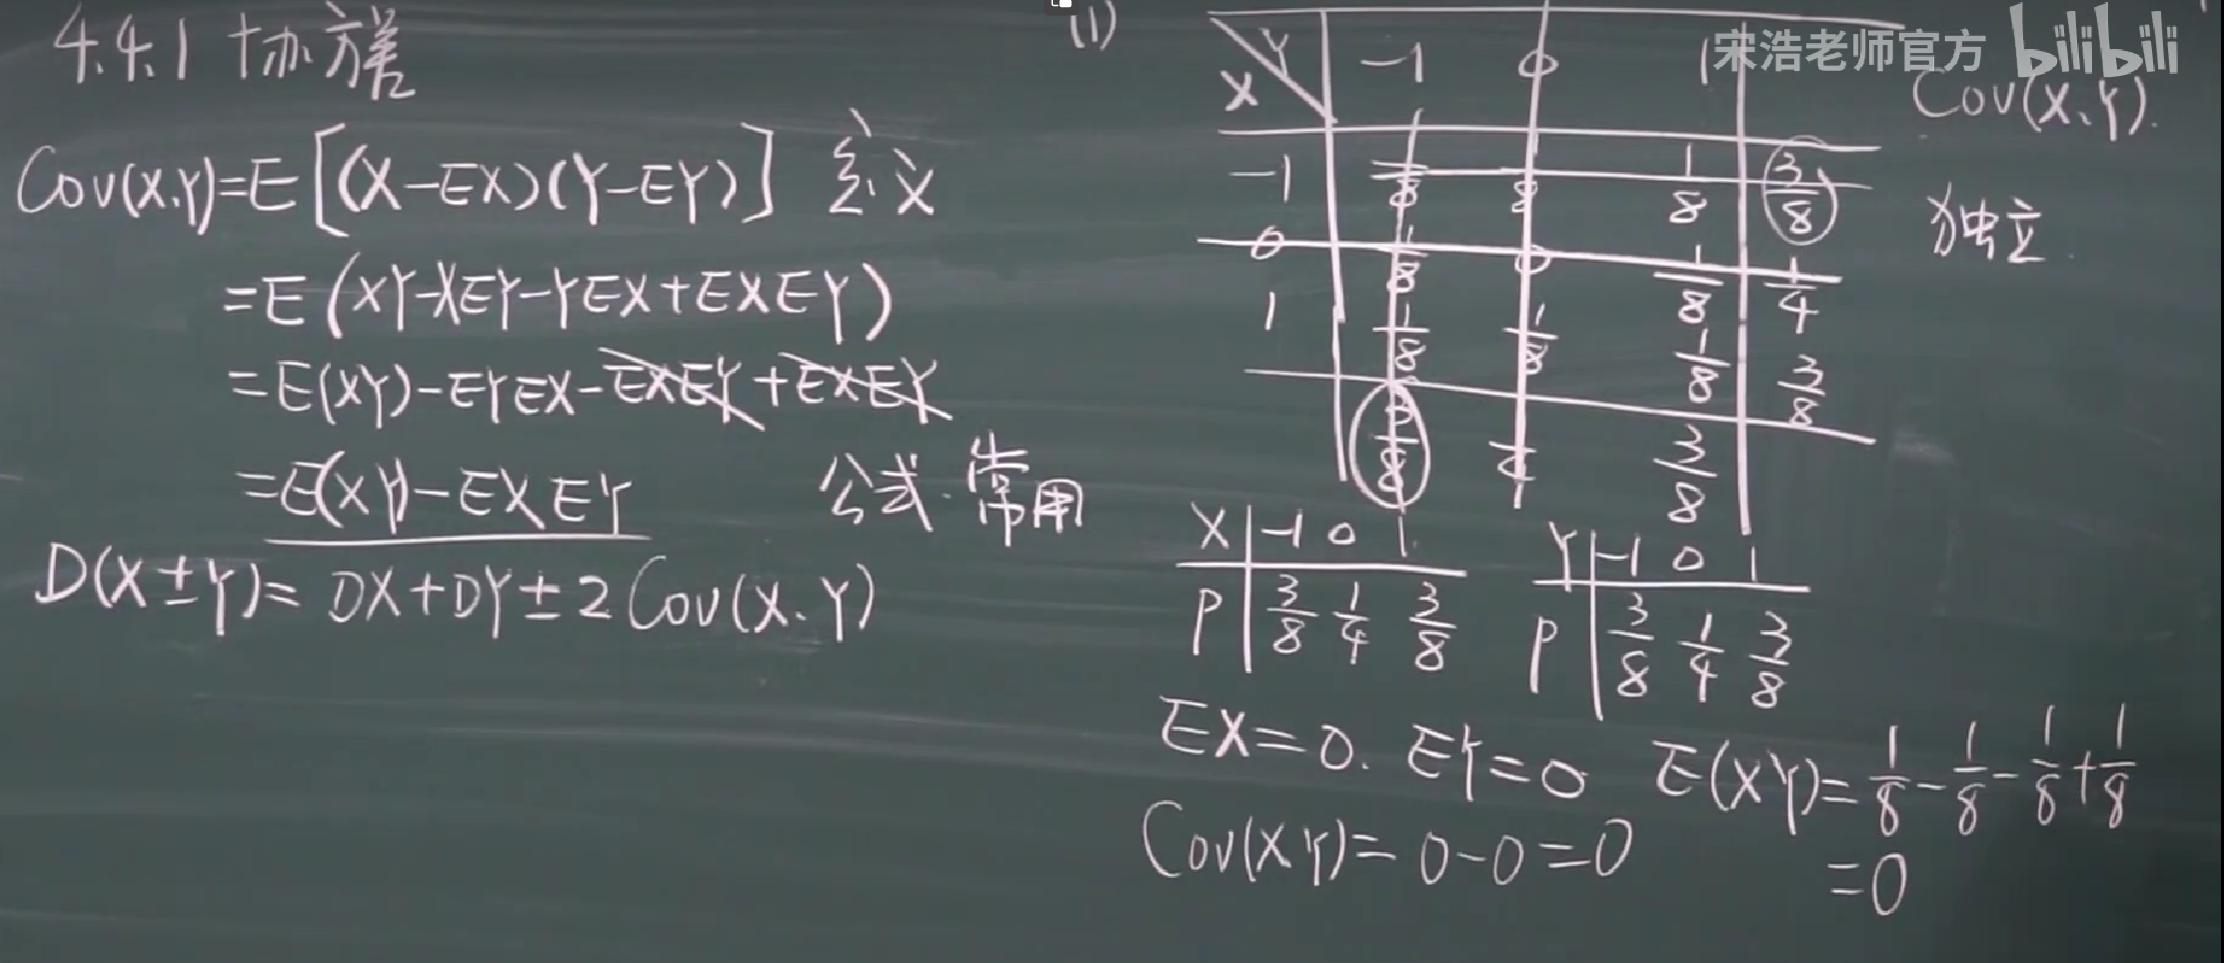 4.4.1 协方差
Cov(X,Y)=E[(X-EX)(Y-EY)] 定义
=E(XY-XEY-YEX+EXEY)
=E(XY)-EYEX-EXEY+EXEY
=E(XY)-EXEY 公式.常用
D(X±Y)=DX+DY±2Cov(X,Y)
(1)
宋浩老师官方 bilibili
Y -1 0 1
X
-1 1/8 1/8 1/8 3/8
0 1/8 0 1/8 1/4
1 1/8 1/8 1/8 3/8
3/8 1/4 3/8
Cov(X,Y).
独立.
X -1 0 1
P 3/8 1/4 3/8
Y -1 0 1
P 3/8 1/4 3/8
EX=0. EY=0 E(XY)=1/8-1/8-1/8+1/8
=0
Cov(XY)=0-0=0